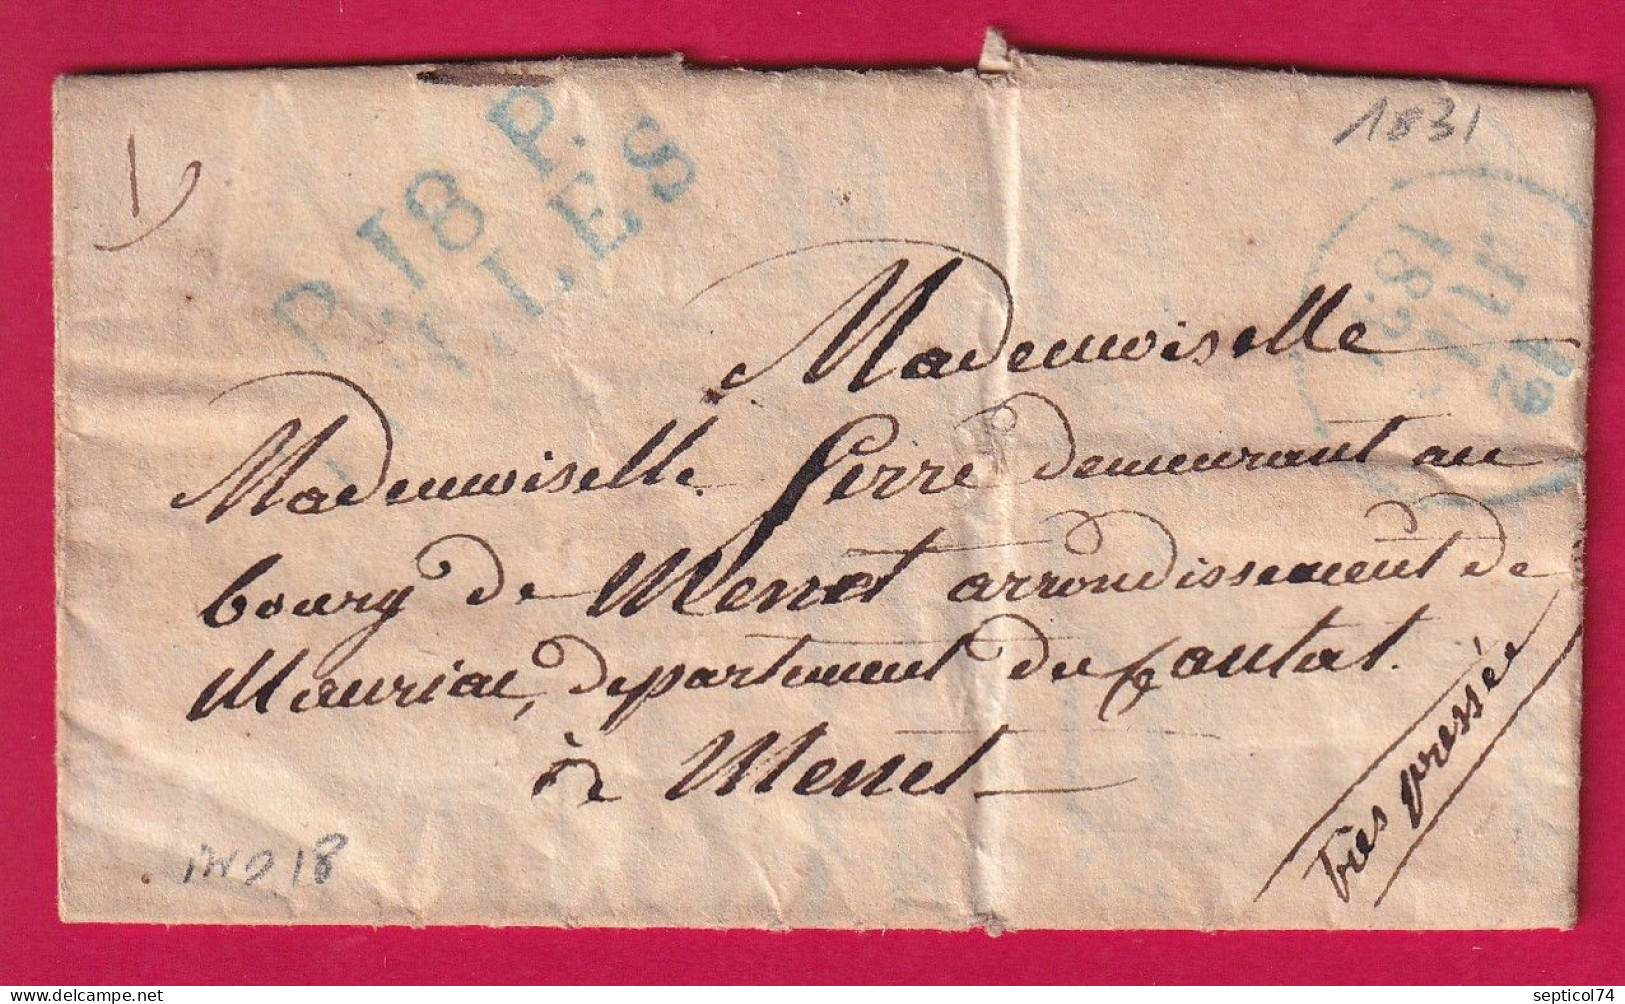 1831
P. 18 P.
V.I.L.E.S
1831
Mademoiselle
Mademoiselle Serre demeurant au
bourg de Menet arrondissement de
Mauriac, departement du Cantal.
à Menet
très pressée
IND 18
delcampe.net
septicol74